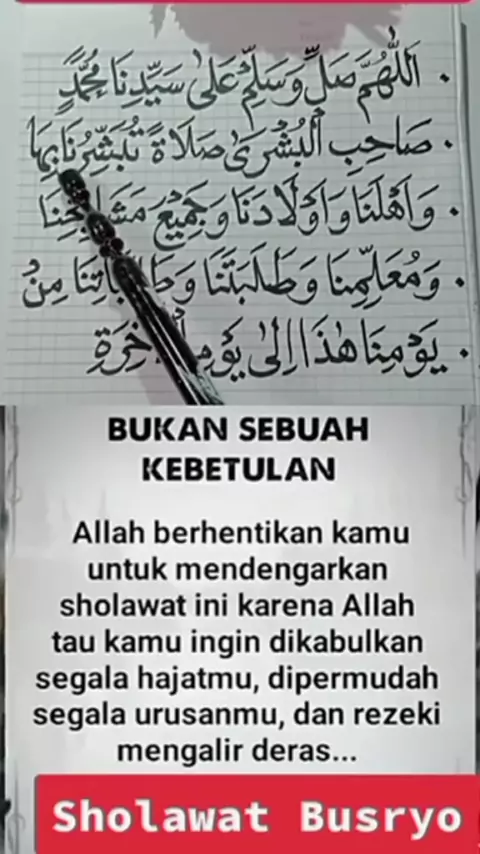 . اَللّٰهُمَّ صَلِّ وَسَلِّمْ عَلىٰ سَيِّدِنَا مُحَمَّدٍ
. صَاحِبِ الْبُشْرَىٰ صَلَاةً تُبَشِّرُنَا بِهَا
. وَاَهْلَنَا وَاَوْلَادَنَا وَجَمِيْعَ
. وَمُعَلِّمِنَا وَطَلَبَتَنَا مِنْ
. يَوْمِنَا هٰذَا اِلىٰ يَوْمِ
BUKAN SEBUAH
KEBETULAN
Allah berhentikan kamu
untuk mendengarkan
sholawat ini karena Allah
tau kamu ingin dikabulkan
segala hajatmu, dipermudah
segala urusanmu, dan rezeki
mengalir deras...
Sholawat Busryo